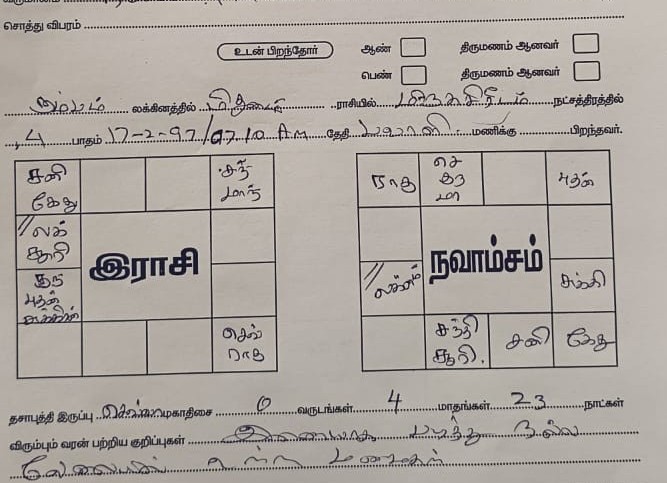 சொத்து விபரம்
உடன் பிறந்தோர் ஆண் திருமணம் ஆனவர்
பெண் திருமணம் ஆனவர்
கும்பம் லக்கினத்தில் மிதுனம் ராசியில் நட்சத்திரத்தில்
4 பாதம் 17-2-97/07.10 Am தேதி பவானி மணிக்கு பிறந்தவர்.
சனி சந் ராகு செ புதன்
கேது மாந் குரு
மா
லக்
சூரி
குரு இராசி லக்னம் நவாம்சம் சுக்கி
புதன்
சுக்கிரன்
செவ் சந்தி சனி கேது
ராகு சூரி.
தசாபுத்தி இருப்பு செவ்வாய் மகாதிசை 0 வருடங்கள் 4 மாதங்கள் 23 நாட்கள்
விரும்பும் வரன் பற்றிய குறிப்புகள் இணையாக படித்து நல்ல
வேலையில் உள்ள மணமகன்